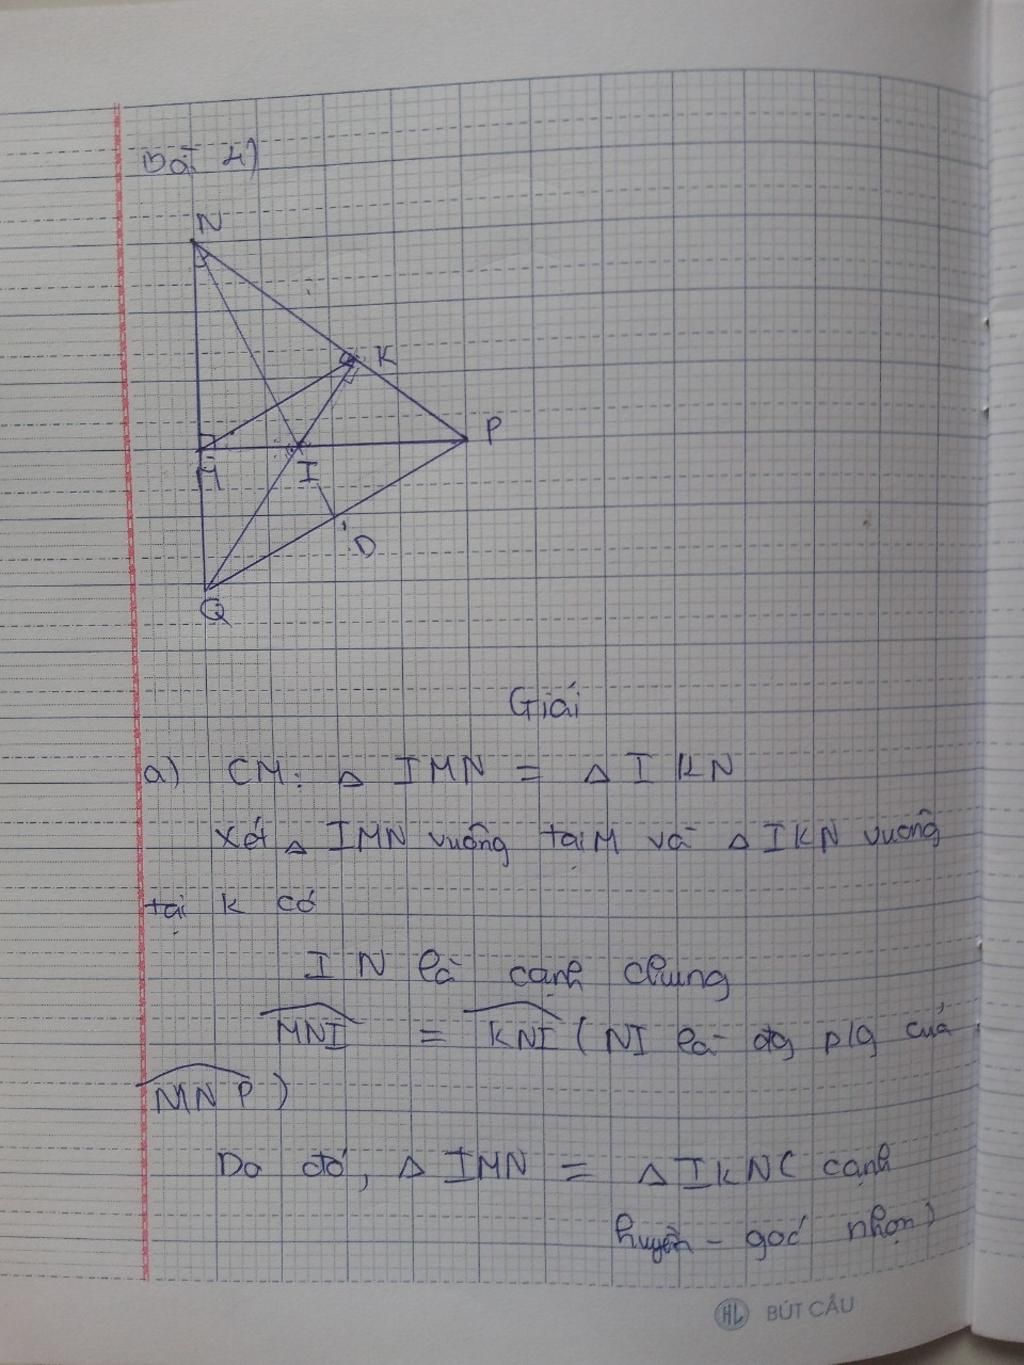 Bài 4)
N
K
P
M
I
D
Q
Giải
a) CM: △ IMN = △ IKN
Xét △ IMN vuông tại M và △ IKN vuông
tại K có
IN là cạnh chung
MNI = KNI (NI là đg p/g của
MNP)
Do đó, △ IMN = △ IKN ( cạnh
huyền - goć nhọn)
HL BÚT CÂU